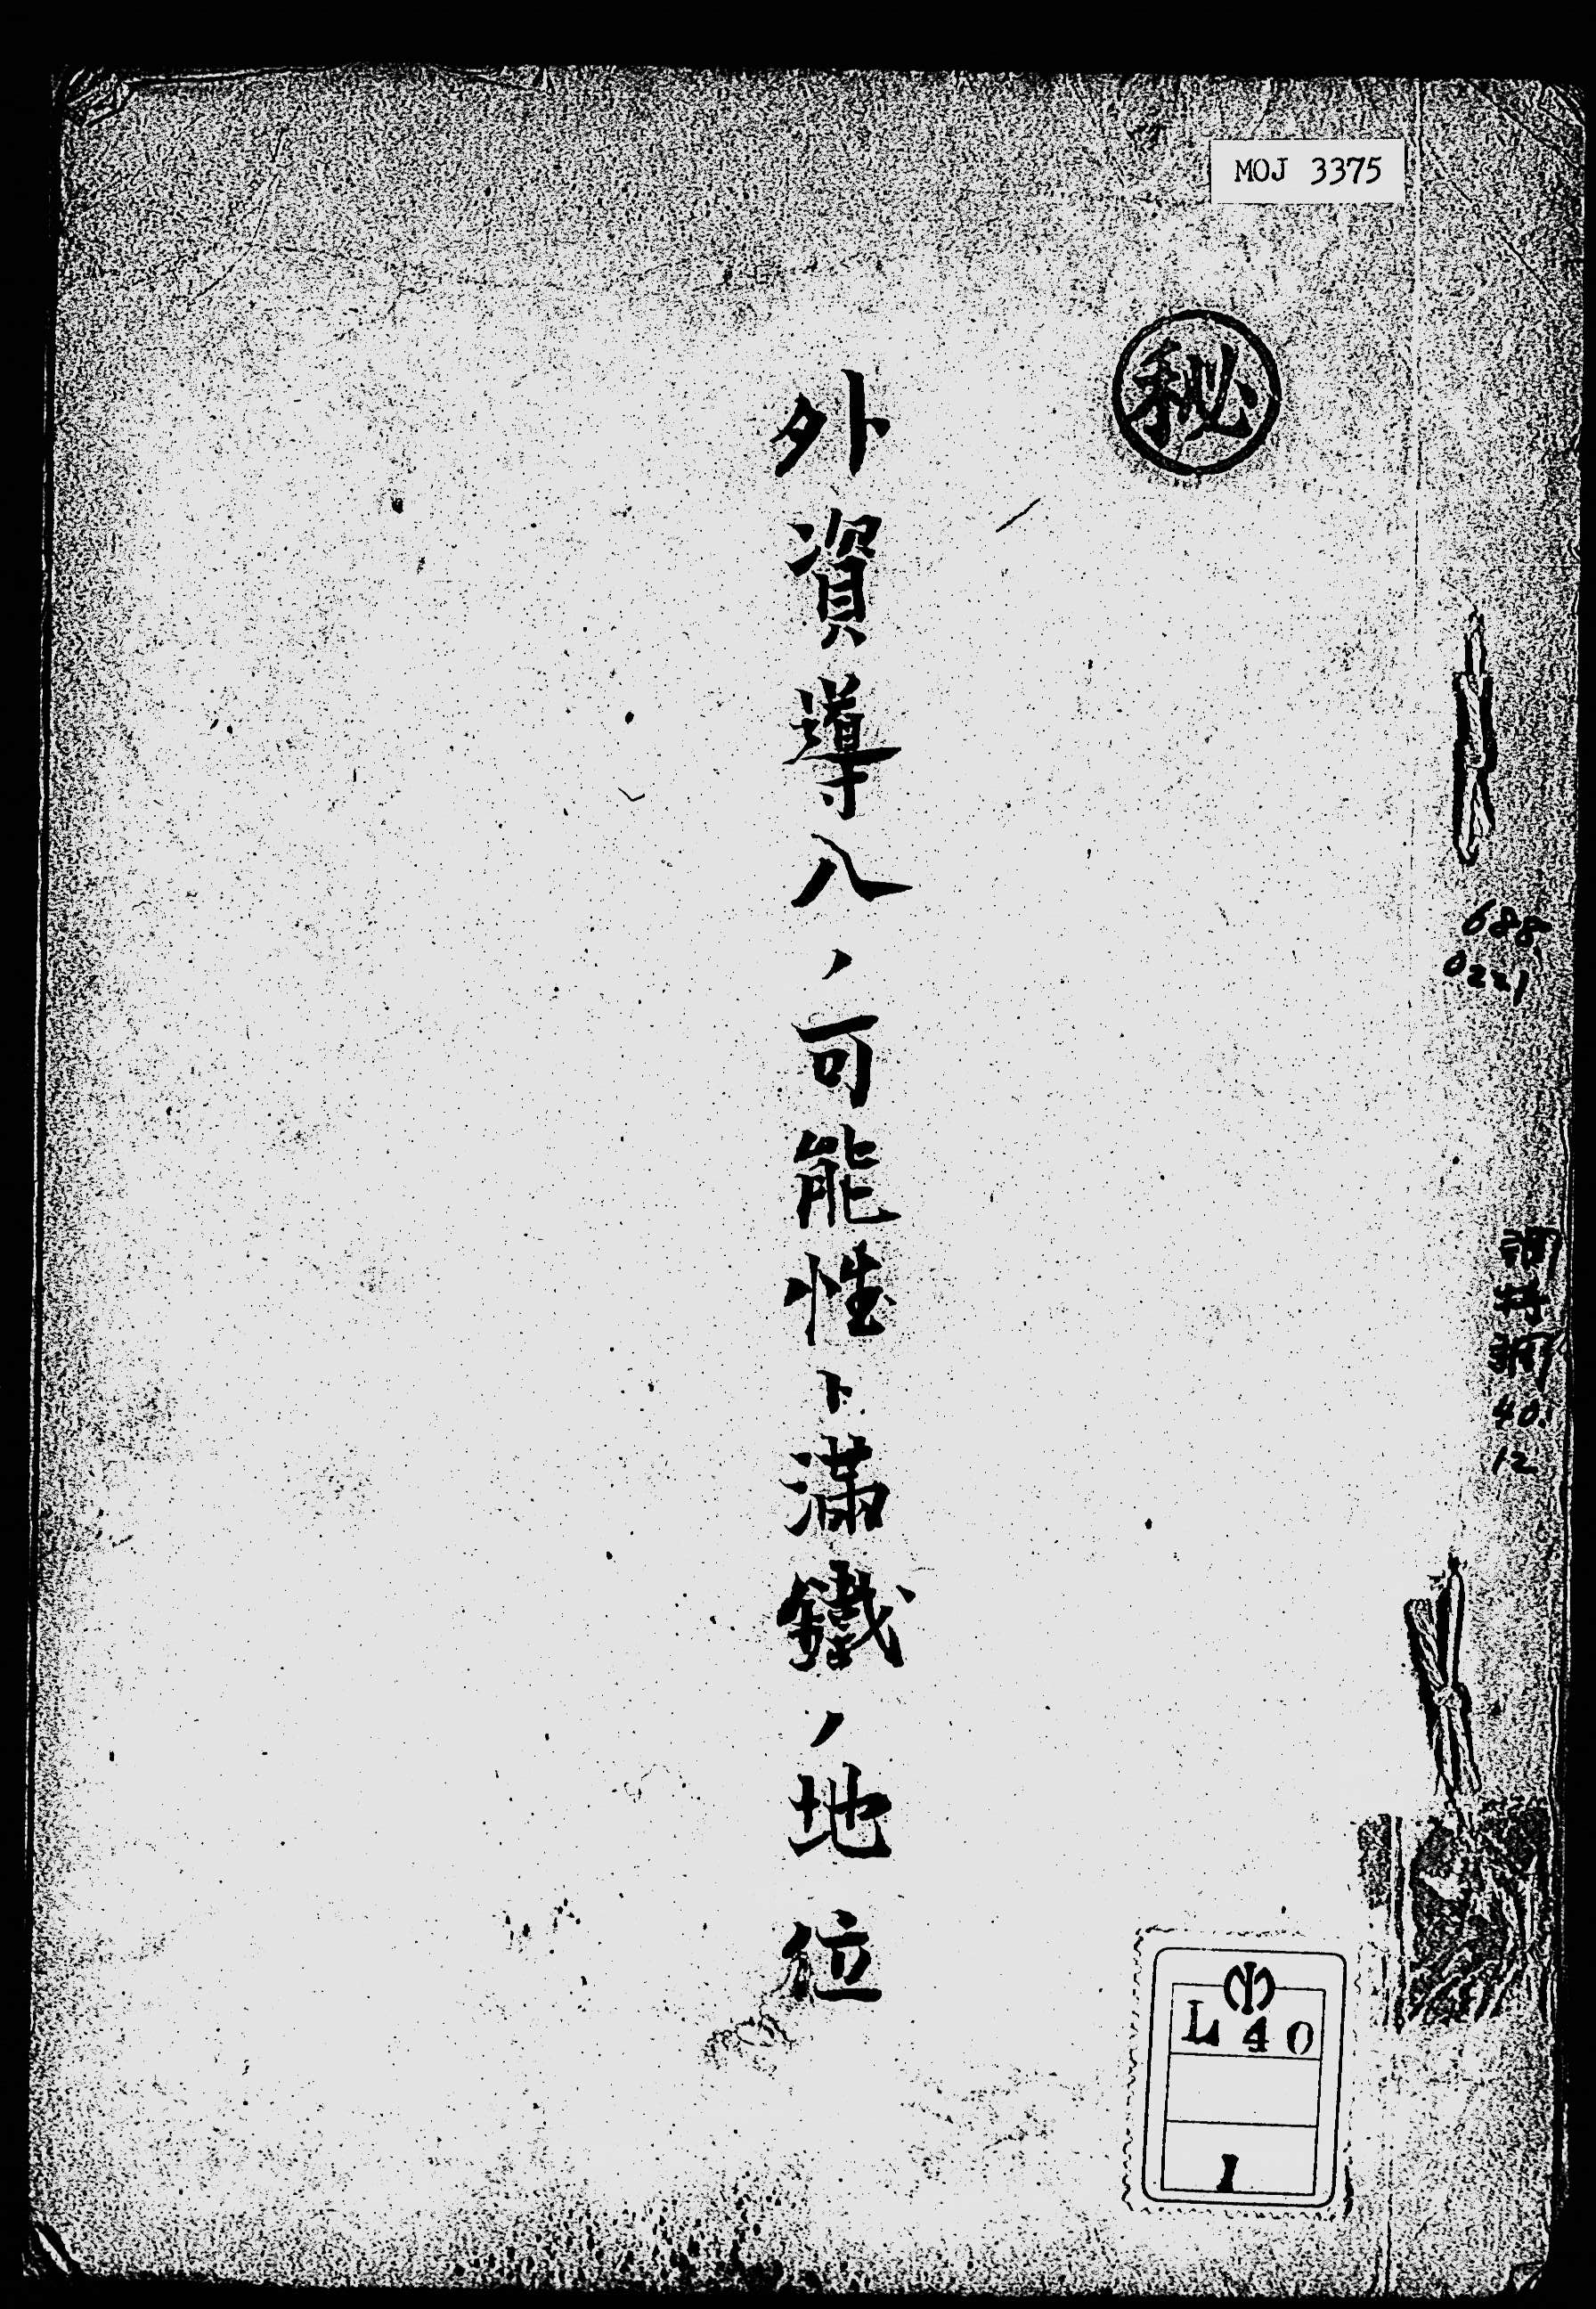 MOJ 3375
秘
外資導入ノ可能性ト滿鐵ノ地位
688
0221
40.
12
L40
1